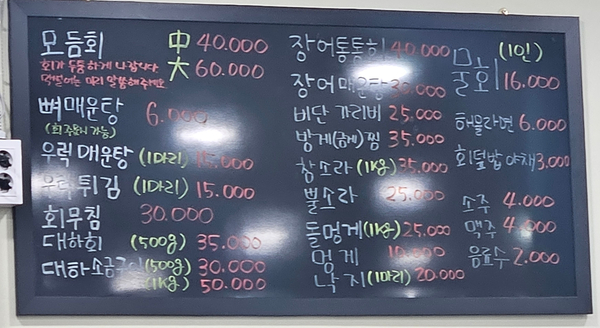 모듬회 中 40.000
회가 두툼하게 나갑니다 大 60.000
먹떨이는 미리 말씀해주세요
뼈매운탕 6.000
(회 주문시 가능)
우럭매운탕 (1마리) 15.000
우럭튀김 (1마리) 15.000
회무침 30.000
대하회 (500g) 35.000
대하소금구이 (500g) 30.000
(1kg) 50.000
장어통통회 40.000
장어매운탕 30.000
비단 가리비 25.000
방게(금게)찜 35.000
참소라 (1kg) 35.000
뿔소라 25.000
돌멍게 (1kg) 25.000
멍게 10.000
낙지 (1마리) 20.000
물회 (1인) 16.000
해물라면 6.000
회덮밥 야채 3.000
소주 4.000
맥주 4.000
음료수 2.000